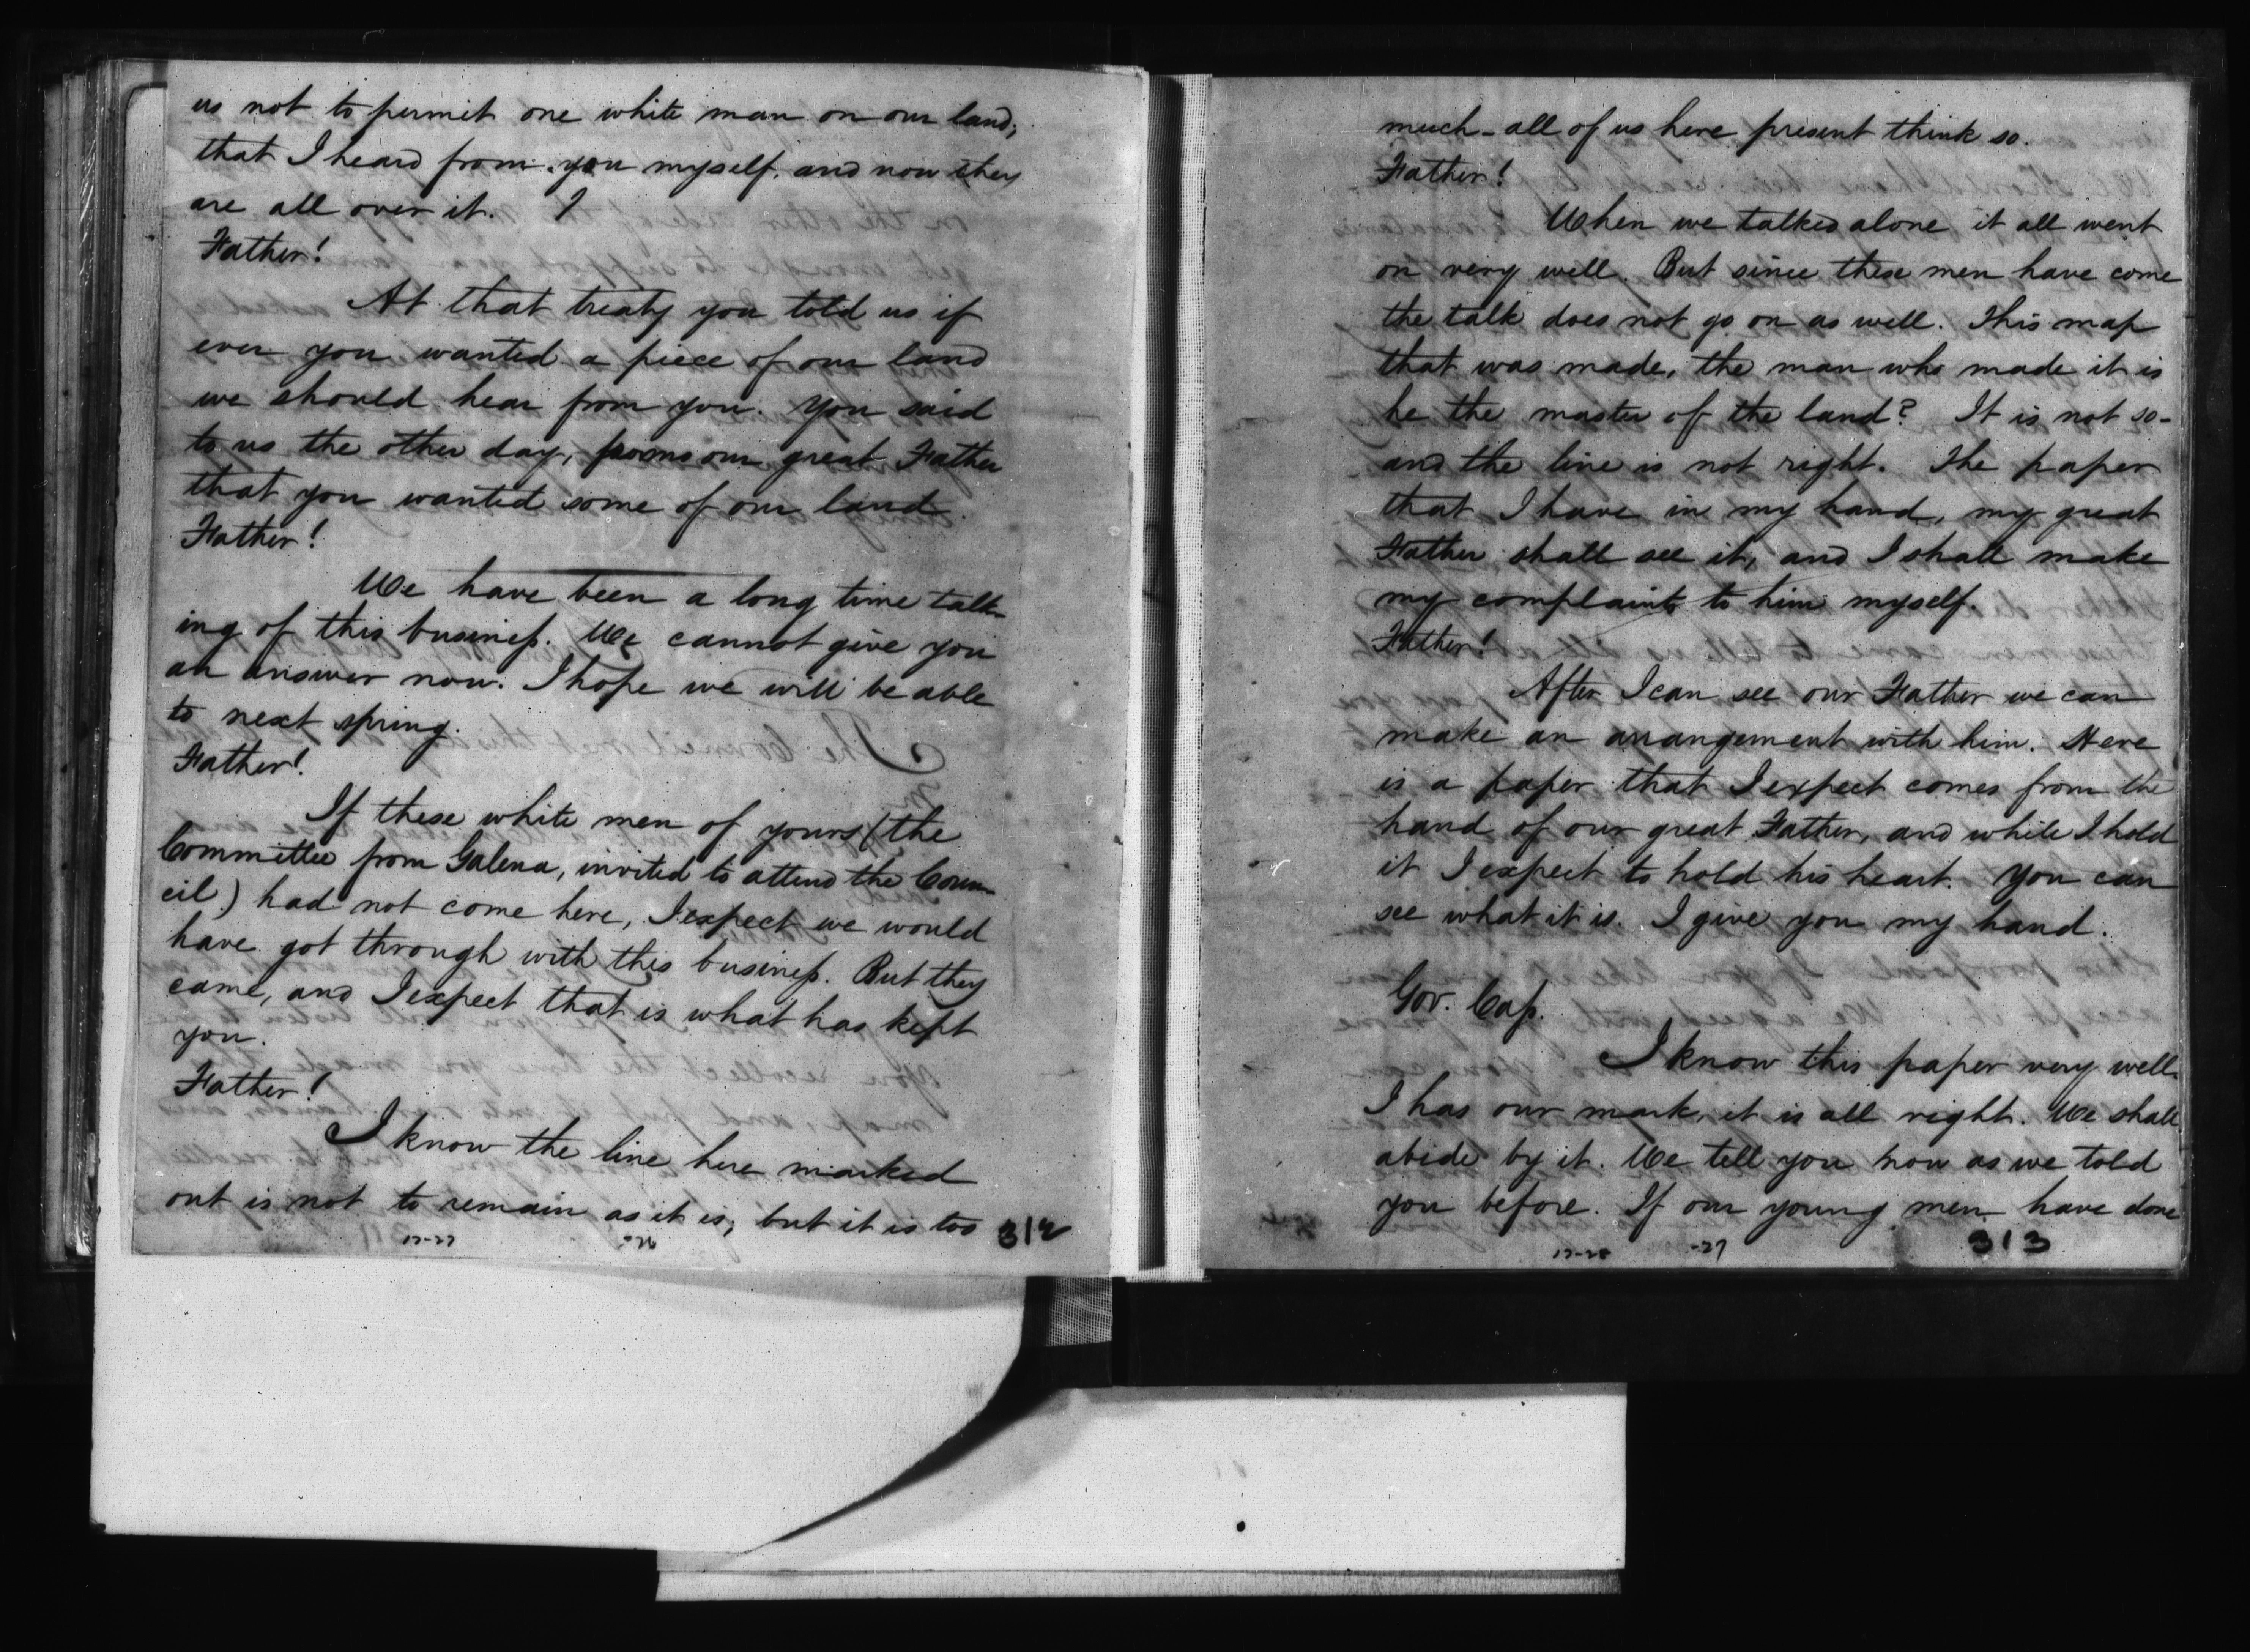 us not to permit one white man on our land;
that I heard from you myself, and now they
are all over it. I
Father!
At that treaty you told us if
ever you wanted a piece of our land
we should hear from you. You said
to us the other day, from our great Father
that you wanted some of our land.
Father!
We have been a long time talk-
ing of this business. We cannot give you
an answer now. I hope we will be able
to next spring.
Father!
If these white men of yours (the
Committee from Galena, invited to attend the Coun-
cil) had not come here, I expect we would
have got through with this business. But they
came, and I expect that is what has kept
you.
Father!
I know the line here marked
out is not to remain as it is; but it is too
312
much - all of us here present think so.
Father!
When we talked alone it all went
on very well. But since these men have come
the talk does not go on as well. This map
that was made, the man who made it is
he the master of the land? It is not so -
and the line is not right. The paper
that I have in my hand, my great
Father shall see it, and I shall make
my complaints to him myself.
Father!
After I can see our Father we can
make an arrangement with him. Here
is a paper that I expect comes from the
hand of our great Father, and while I hold
it I expect to hold his heart. You can
see what it is. I give you my hand.
Gov. Cass.
I know this paper very well.
I has our mark, it is all right. We shall
abide by it. We tell you now as we told
you before. If our young men have done
-27
313